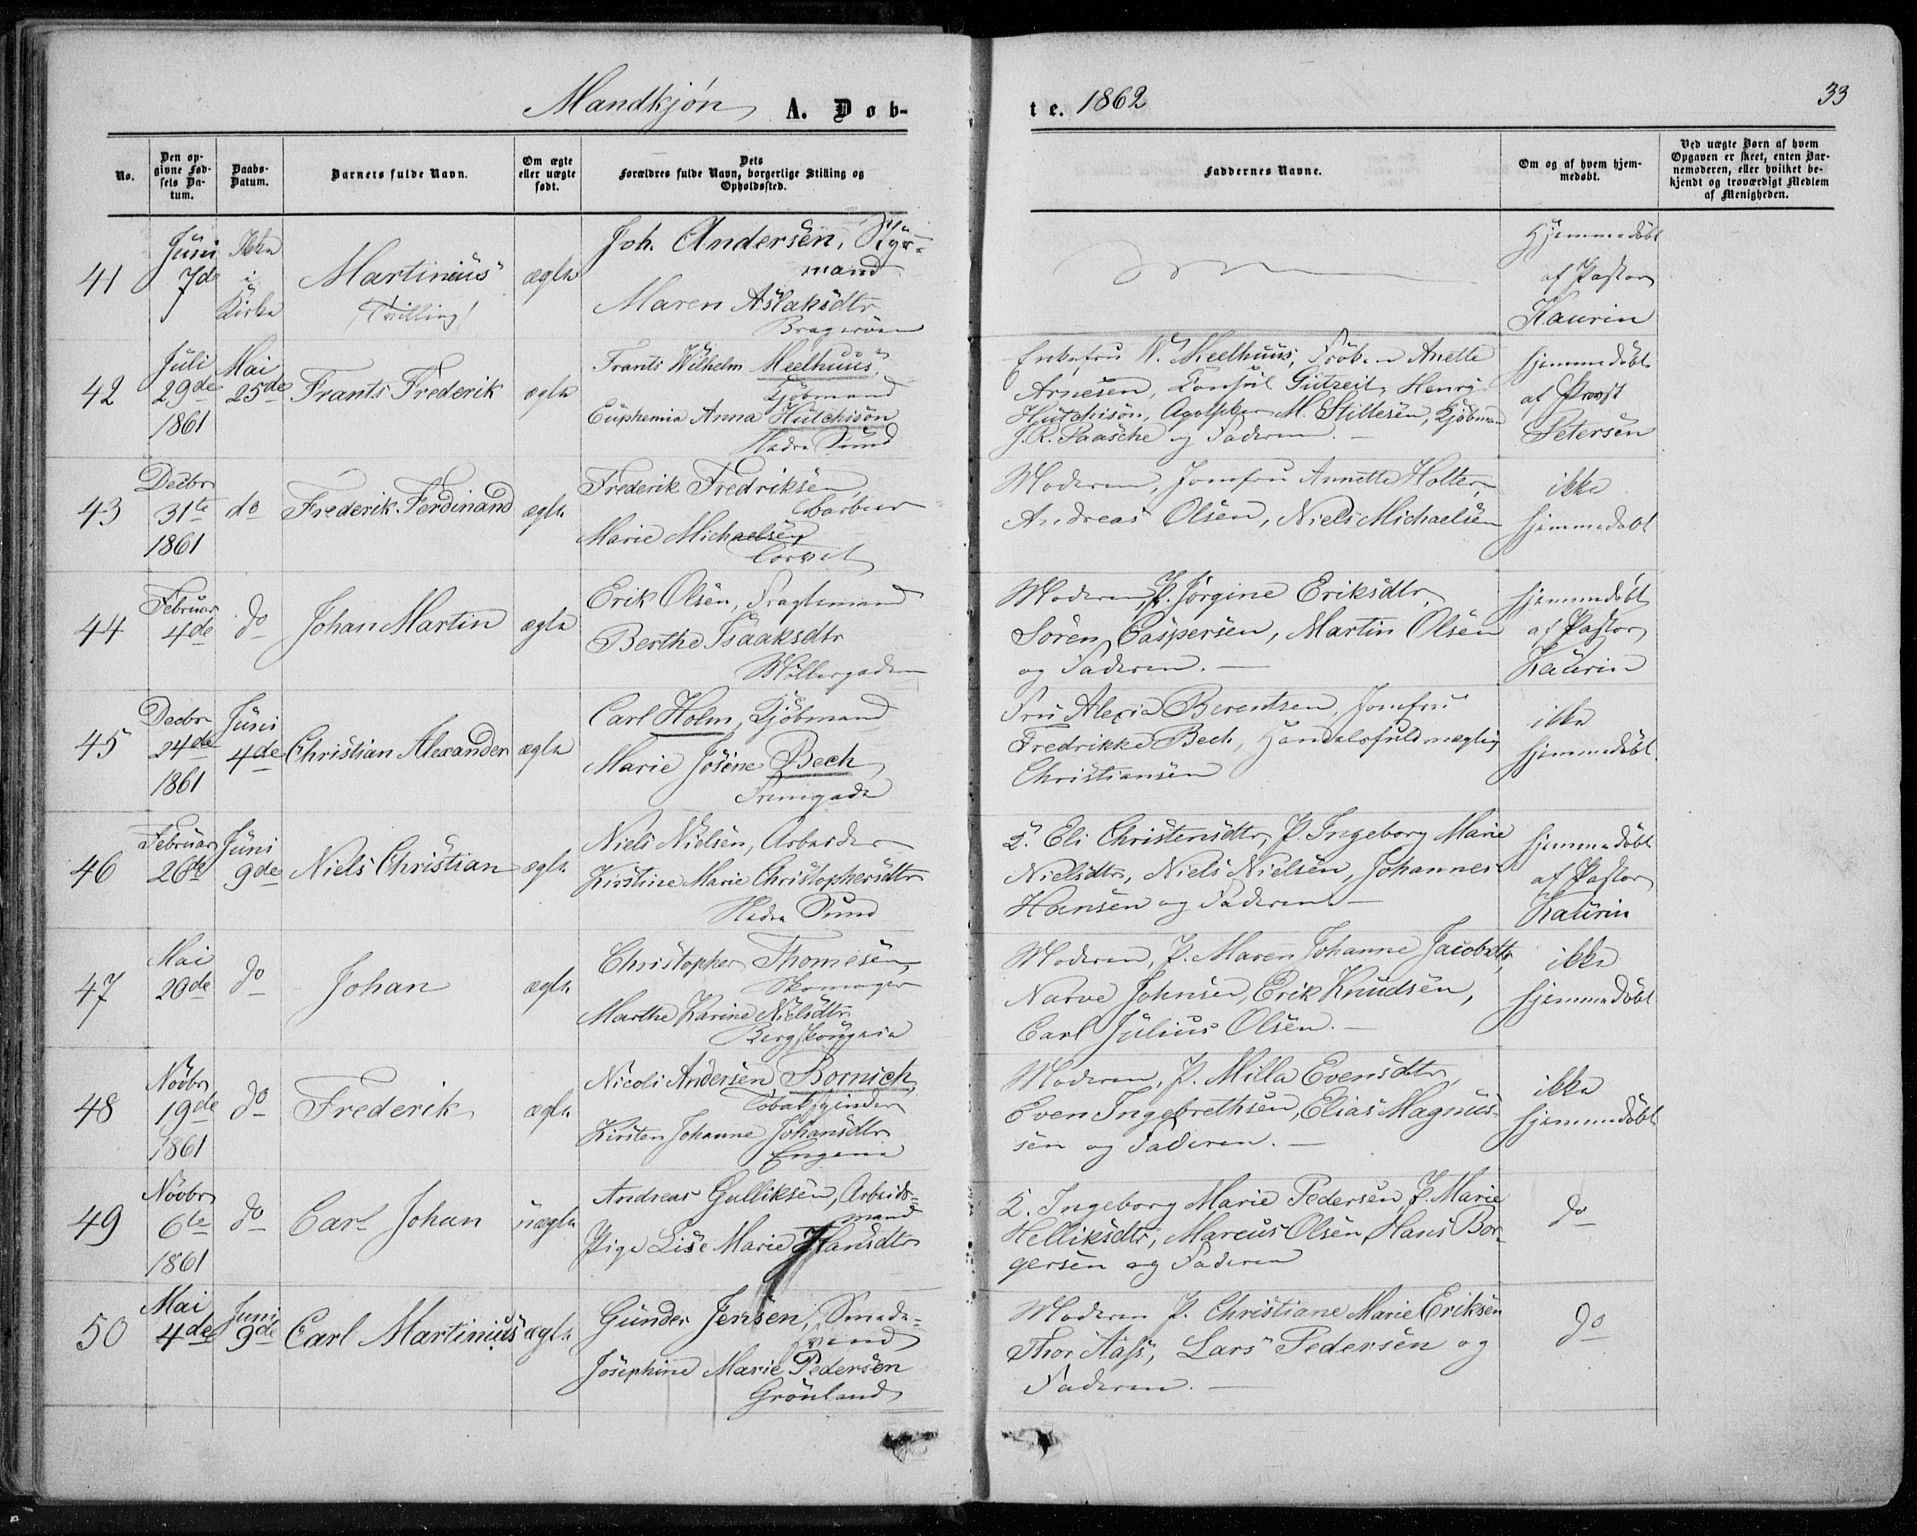 Mandkjøn A. Døb-
te. 1862
33
No.
Den op-
givne Fød-
sels Da-
tum.
Daabs-
Datum.
Barnets fulde Navn.
Om ægte
eller uægte
født.
Dets
Forældres fulde Navn, borgerlige Stilling og
Opholdssted.
Faddernes Navne.
Om og af hvem hjem-
medøbt.
Ved uægte Børn af hvem
Opgaven er skeet, enten Bar-
nemoderen, eller hvilket be-
kjendt og troværdigt Medlem
af Menigheden.
41
Juni
7de
Ikke
i
Kirke
Martinius
(Trilling)
ægte
Joh. Andersen, Styr-
mand
Maren Aslaksdtr
Bragerøen
Hjemmedøbt
af Pastor
Kaurin
42
Juli
29de
1861
Mai
25de
Frants Frederik
ægte
Frants Wilhelm Meelhuus,
Kjøbmand
Euphemia Anna Hutchison
Nedre Sund
Enkefru W. Meelhuus, Frøken Anette
Arnesen, Konsul Gutzeit, Henry
Hutchison, M. Stiltesen, Kjøbman
J. R. Paasche og Faderen. —
hjemmedøbt
af Provst
Petersen
43
Decbr
31te
1861
do
Frederik Ferdinand
ægte
Frederik Fredriksen,
Garbeer
Marie Michaelsen,
Moderen, Jomfru Annette Holter,
Andreas Olsen, Niels Michaelsen
ikke
hjemmedøbt
44
Februar
4de
do
Johan Martin
ægte
Erik Olsen, Fragtemand
Berthe Isaaksdtr
Møllergaden
Moderen, P. Jørgine Eriksdtr,
Søren Caspersen, Martin Olsen
og Faderen. —
hjemmedøbt
af Pastor
Kaurin
45
Decbr
24de
1861
Juni
4de
Christian Alexander
ægte
Carl Holm, Kjøbmand
Marie Josine Bech,
Fru Alexia Berentsen, Jomfru
Fredrikke Bech, Handelsfuldmægtig
Christiansen
ikke
hjemmedøbt.
46
Februar
26de
Juni
9de
Niels Christian
ægte
Niels Nielsen, Arbeider
Kirstine Marie Christophersdtr
Nedre Sund
K. Eli Christensdtr, P. Ingeborg Marie
Nielsdtr, Niels Nielsen, Johannes
Hansen og Faderen. —
hjemmedøbt
af Pastor
Kaurin
47
Mai
20de
do
Johan
ægte
Christopher Thomesen,
Skomager
Marthe Karine Nielsdtr
Moderen, P. Maren Johanne Jacobsdtr,
Narve Johnsen, Erik Knudsen,
Carl Julius Olsen. —
ikke
hjemmedøbt
48
Novbr
19de
1861
do
Frederik
ægte
Nicoli Andersen Bornich,
Tobakspinder
Kirsten Johanne Johansdtr
Engene
Moderen, P. Milla Evensdtr,
Even Ingebrethsen, Elias Magnus-
sen og Faderen. —
ikke
hjemmedøbt
49
Novbr
6te
1861
do
Carl Johan
uægte
Andreas Gulliksen, Arbeids-
mand
Pige Lise Marie Hansdtr
K. Ingeborg Marie Pedersen, P. Marie
Helliksdtr, Marcus Olsen, Hans Bor-
gersen og Faderen
do
50
Mai
4de
Juni
9de
Carl Martinius
ægte
Gunder Jensen, Smede-
svend
Josephine Marie Pedersen
Grønland
Moderen P. Christiane Marie Eriksen
Thor Aass, Lars Pedersen og
Faderen. —
do